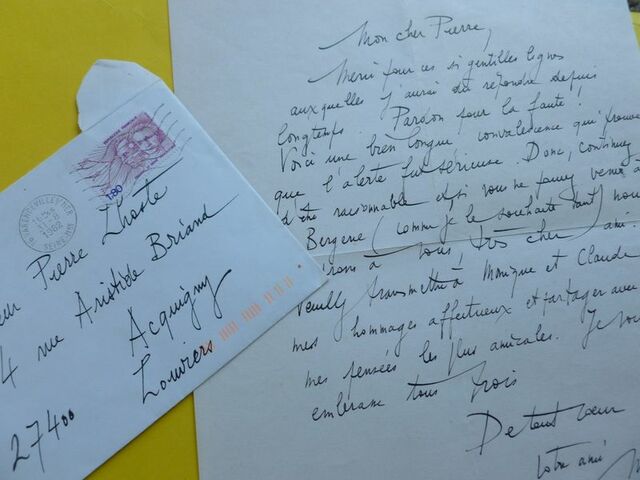 Mon cher Pierre,
Merci pour ces si gentilles lignes
auxquelles j'aurai dû répondre depuis
longtemps. Pardon pour la faute!
Voici une bien longue convalescence qui prouve
que l'alerte fut sérieuse. Donc, continuez
d'être raisonnable et si vous ne pouvez venir à
Bergerie (comme je le souhaite tant) nous
irons à vous, très cher ami.
Veuillez transmettre à Monique et Claude
mes hommages affectueux et partager avec
mes pensées les plus amicales. Je vous
embrasse tous trois
De tout cœur
Votre ami
1,80
1982
Pierre Lhoste
4 rue Aristide Briand
Acquigny
Louviers
27400